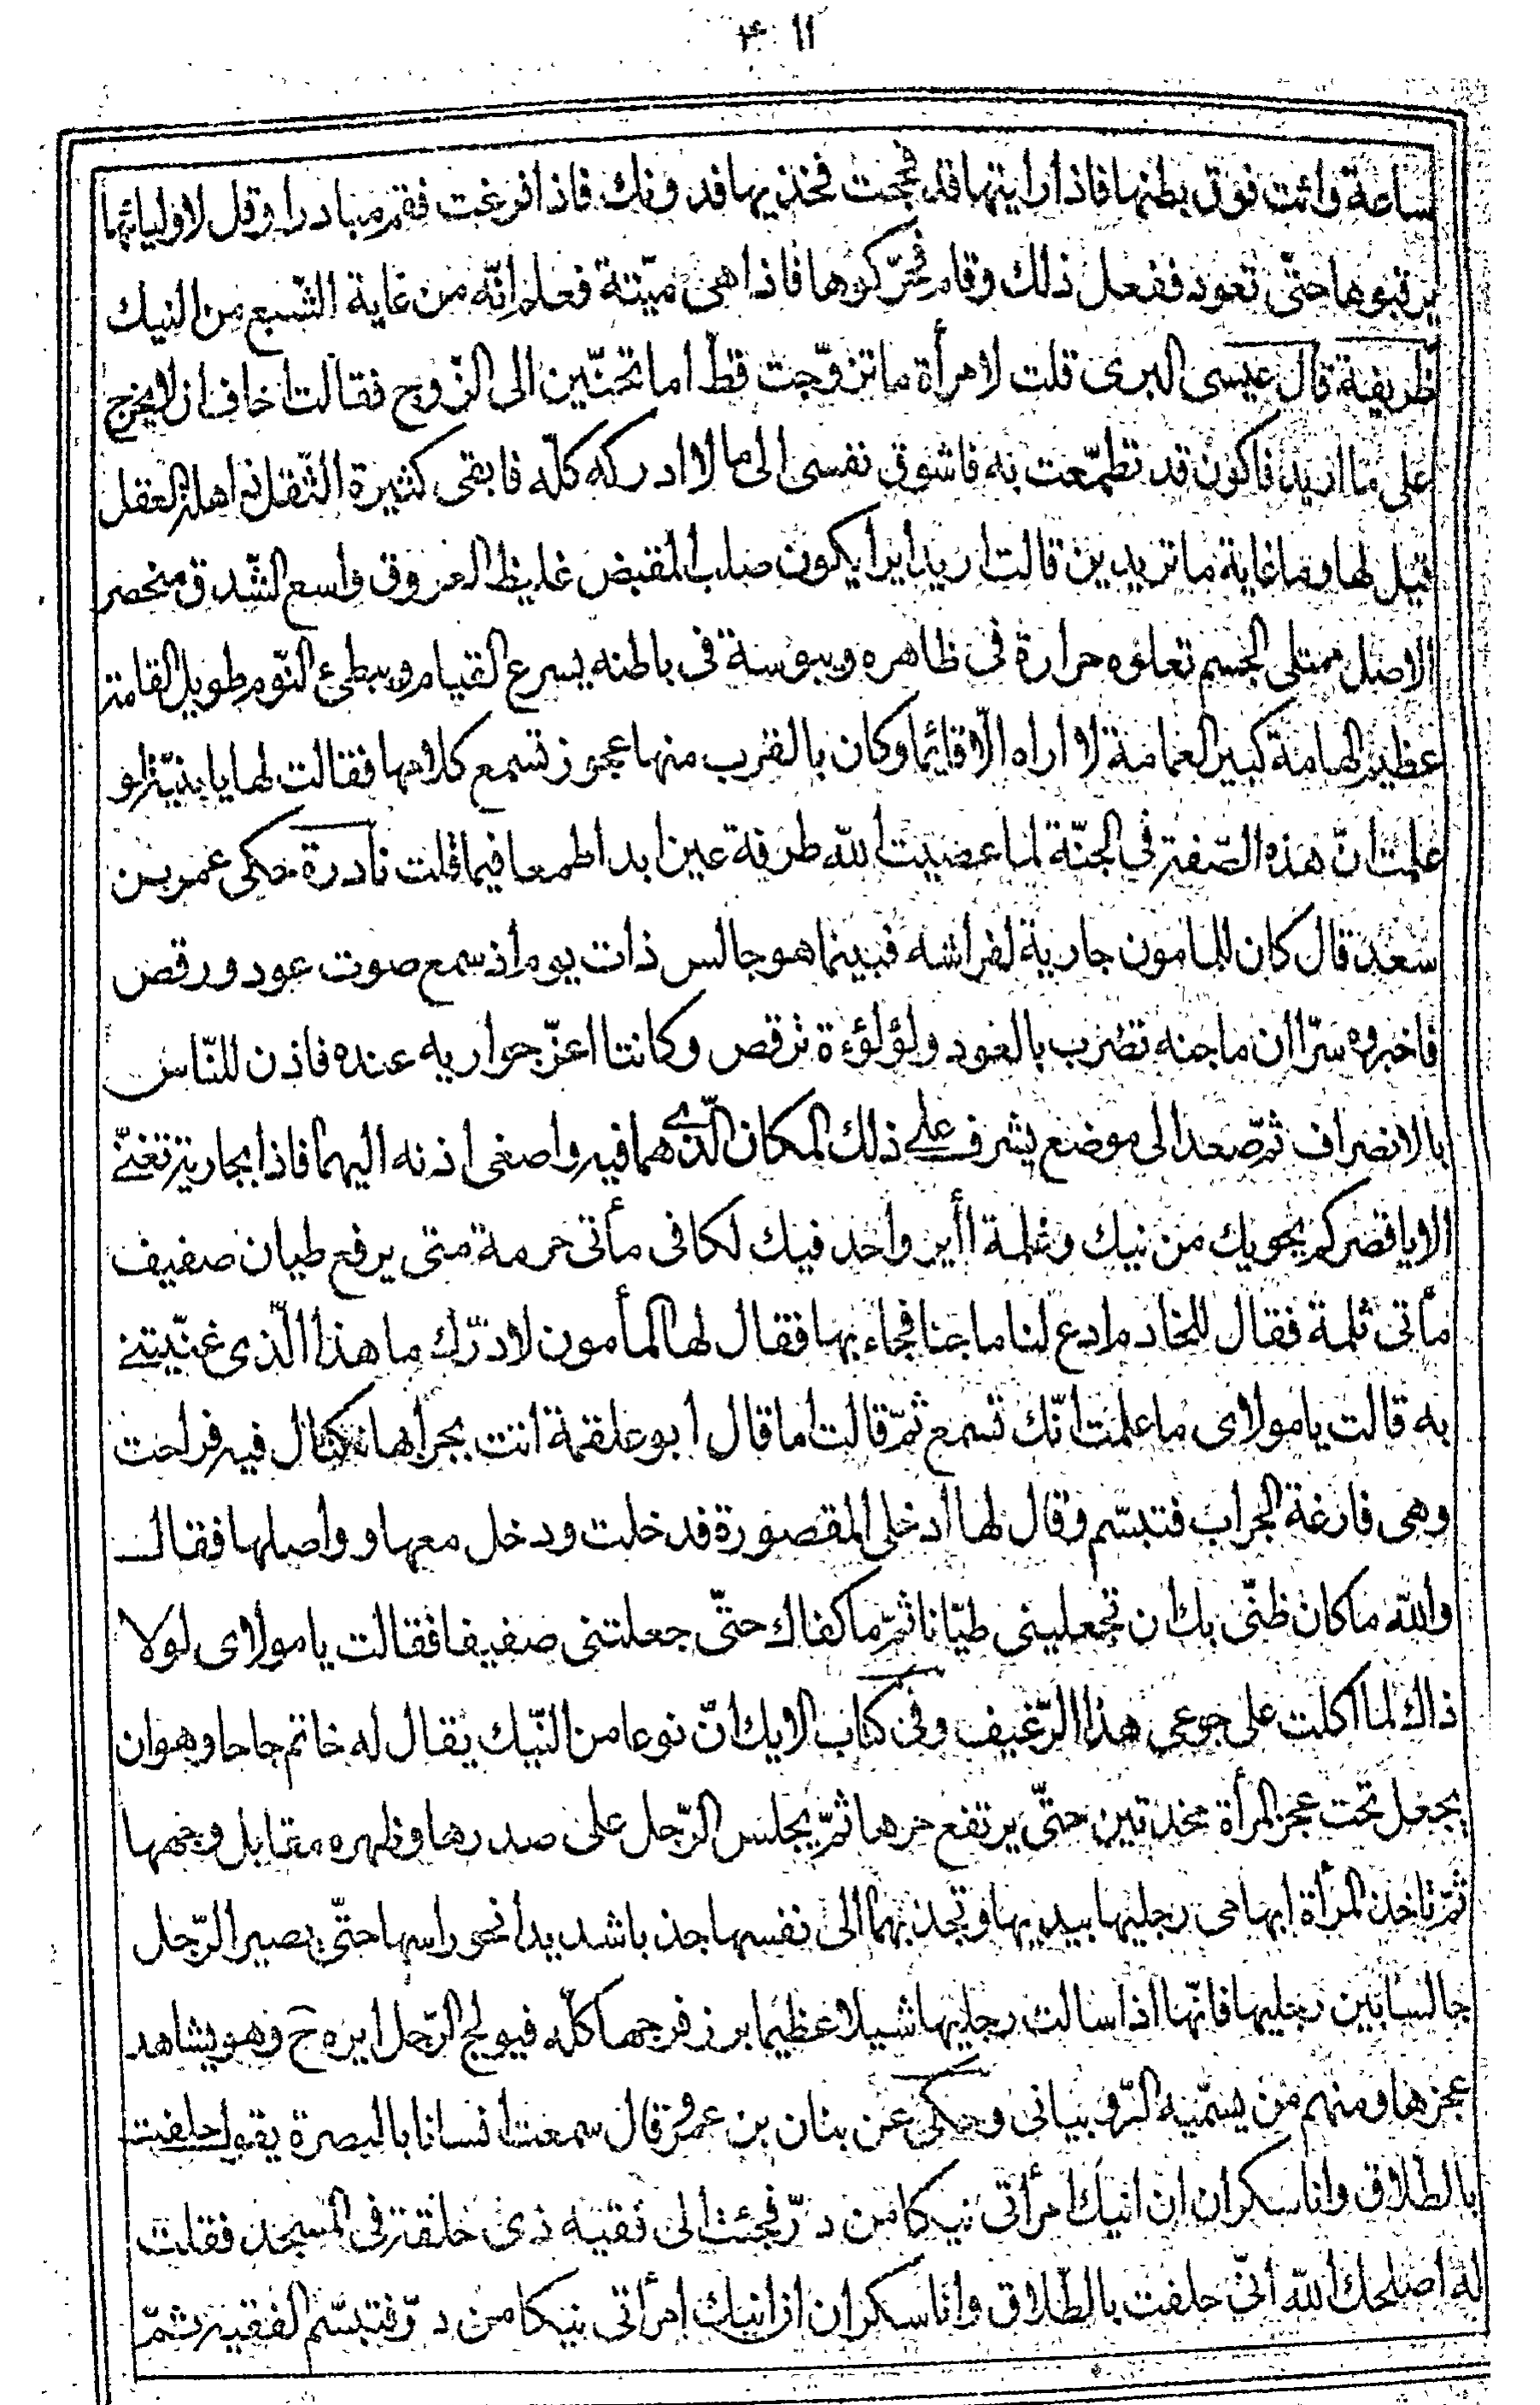 ٤١١
ساعة وانت فوق بطنها فاذا رايتها قد فججت فخذيها فدونك فاذا فرغت فقم مبادرا وقل لاوليائها
يرقبوها حتّى تعود ففعل ذلك وقام فحرّكوها فاذا هى ميّتة فعلم انّه من غاية الشّبع من النيك
ظريفة قال عيسى البرى قلت لامرأة ما تزوّجت قطّ اما تحنّين الى الزّوج فقالت اخاف ان لا يخرج
على ما اريد فاكون قد تطمّعت به فاشوق نفسى الى ما لا ادركه كلّه فابقى كثيرة العقل
قيل لها وما غاية ما تريدين قالت اريد ايرا يكون صلب المقبض غليظ العروق واسع الشّدق منحصر
الاصل ممتلى الجسم تعلوه حرارة فى ظاهره ويبوسة فى باطنه يسرع القيام ويبطئ النّوم طويل القامة
عظيم الهامة كبير العمامة لا اراه الّا قائما وكان بالقرب منها عجوز تسمع كلامها فقالت لها يا بنيّة لو
علمت انّ هذه الصّفة فى الجنّة لما عصيت الله طرفة عين ابدا طمعا فيما قلت نادرة حكى عمر بن
سعد قال كان للمامون جارية لفراشه فبينما هو جالس ذات يوم اذ سمع صوت عود ورقص
فاخبروه سرّا ان ماجنه تضرب بالعود ولؤلؤة ترقص وكانتا اعزّ جواريه عنده فاذن للنّاس
بالانصراف ثمّ صعد الى موضع يشرف على ذلك المكان الّذى هما فيه واصغى اذنه اليهما فاذا بجارية تغنّى
الا يا قصر كم يحويك من نيك وثلمة أأير واحد فيك لكافى مأتى حرمة متى يرفع طيان صفيف
مأتى ثلمة فقال للخادم ادع لنا ماجنا فجاء بها فقال لها المأمون لا درّك ما هذا الّذى غنّيتنى
به قالت يا مولاى ما علمت انّك تسمع ثمّ قالت اما قال ابو علقمة انت بجرابها تكتال فيه فراحت
وهى فارغة الجراب فتبسّم وقال لها ادخلى المقصورة فدخلت ودخل معها وواصلها فقال
والله ما كان ظنّى بك ان تجعلينى طيّانا ثمّ ما كفاك حتّى جعلتنى صفيفا فقالت يا مولاى لولا
ذاك لما اكلت على جوعى هذا الرّغيف وفى كتاب الايك انّ نوعا من النّيك يقال له خاتم جاحا وهو ان
يجعل تحت عجز المرأة مخدّتين حتّى يرتفع حرها ثمّ يجلس الرّجل على صدرها وظهره مقابل وجهها
ثمّ تاخذ المرأة ابهامى رجليها بيديها وتجذبهما الى نفسها جذبا شديدا نحو راسها حتّى يصير الرّجل
جالسا بين رجليها فانّها اذا سالت رجليها شيلا عظيما برز فرجها كلّه فيولج الرّجل ايره ح وهو يشاهد
عجزها ومنهم من يسمّيه الزّوبيانى وحكى عن بنان بن عمرو قال سمعت انسانا بالبصرة يقول حلفت
بالطّلاق وانا سكران ان انيك امرأتى نيكا من درّ فجئت الى فقيه ذى حلقة فى المسجد فقلت
له اصلحك الله انّى حلفت بالطّلاق وانا سكران ان انيك امرأتى نيكا من درّ فتبسّم الفقيه ثمّ